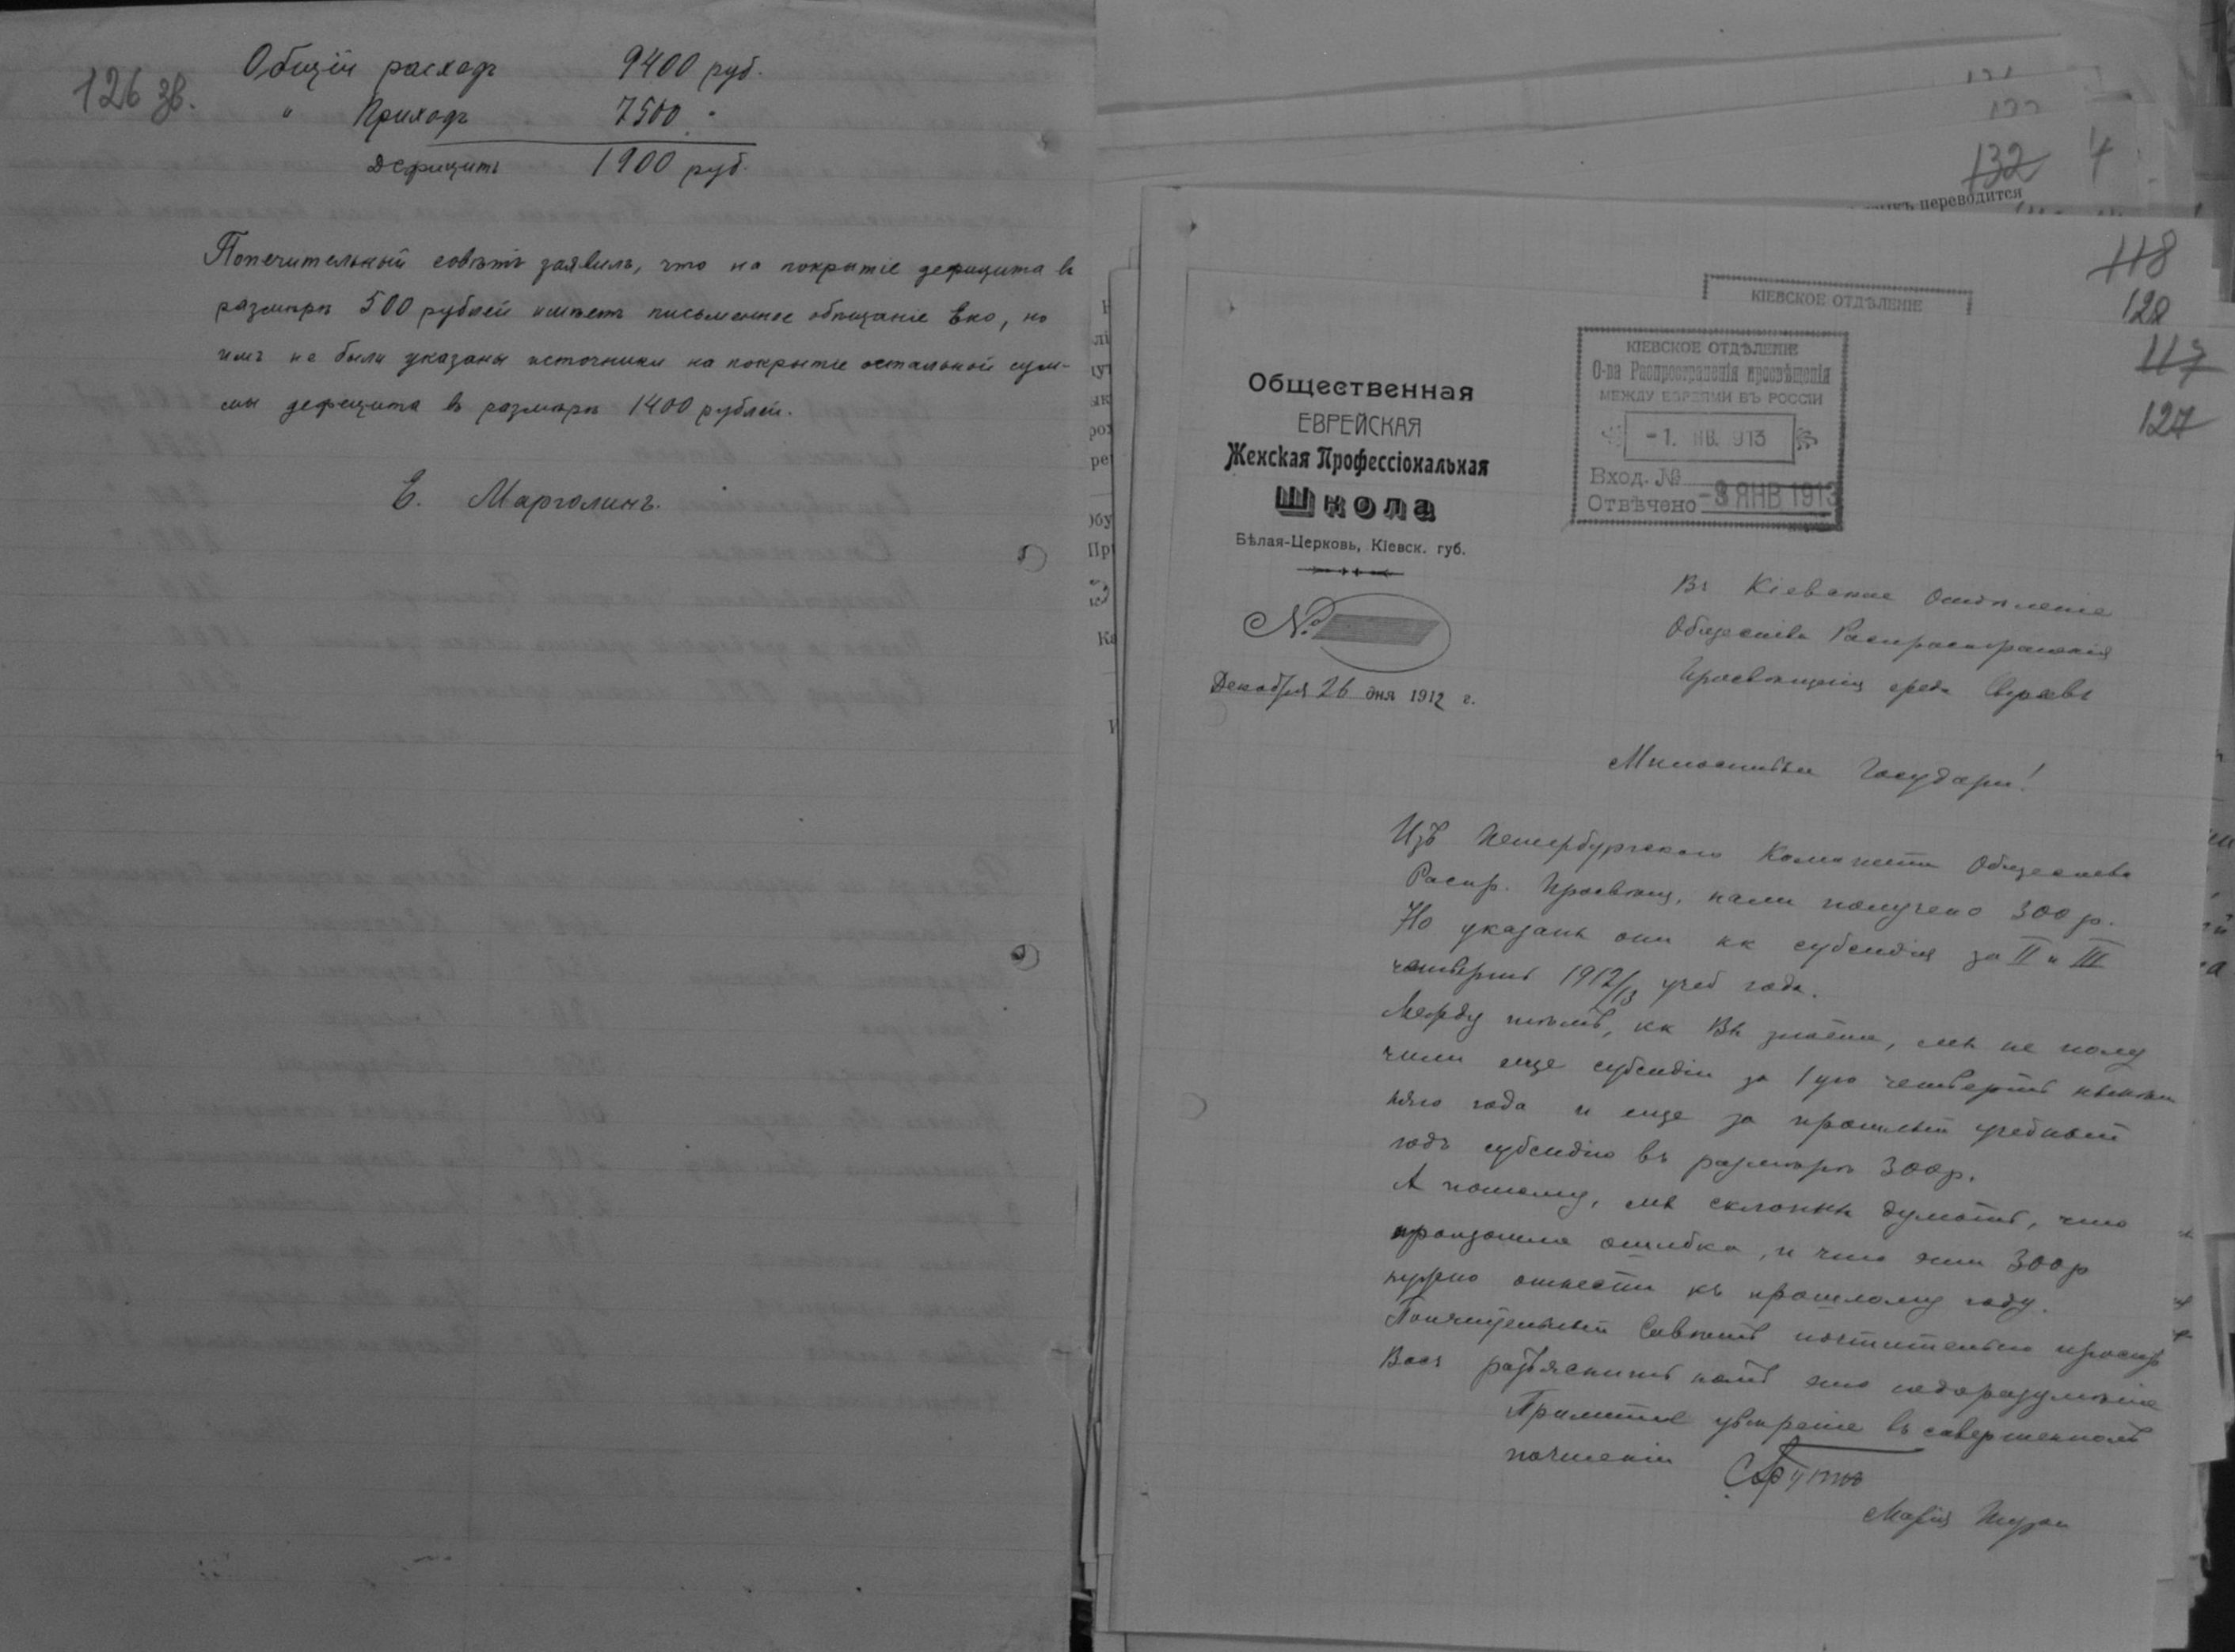 126 зв.
Общій расходъ 9400 руб.
" Приходъ 7500 "
Дефицитъ 1900 руб.
Попечительный совѣтъ заявилъ, что на покрытіе дефицита въ
размѣрѣ 500 рублей имѣетъ письменное обѣщаніе Ека, но
имъ не были указаны источники на покрытіе остальной сум-
мы дефицита въ размѣрѣ 1400 рублей.
Е. Марголинъ.
132 4
переводится
118
128
117
127
КІЕВСКОЕ ОТДѢЛЕНІЕ
КІЕВСКОЕ ОТДѢЛЕНІЕ
О-ва Распространенія просвѣщенія
МЕЖДУ ЕВРЕЯМИ ВЪ РОССІИ
-1. ЯНВ. 1913
Вход. №
Отвѣчено -8 ЯНВ 1913
Общественная
ЕВРЕЙСКАЯ
Женская Профессіональная
Школа
Бѣлая-Церковь, Кіевск. губ.
№
Декабря 26 дня 1912 г.
Въ Кіевское Отдѣленіе
Общества Распространенія
Просвѣщенія среди Евреевъ
Милостивые Государи!
Изъ Петербургскаго Комитета Общества
Распр. Просвѣщ. нами получено 300 р.
Но указаны они кк субсидія за II и III
четверть 1912/13 учеб года.
Между тѣмъ, кк Вы знаете, мы не полу
чили еще субсидіи за 1ую четверть нынѣш
няго года и еще за прошлый учебный
годъ субсидію въ размѣрѣ 300р.
А потому, мы склонны думать, что
произошла ошибка, и что эти 300р
нужно отнести къ прошлому году.
Попечительный Совѣтъ почтительно проситъ
Васъ разъяснить намъ это недоразумѣніе
Примите увѣреніе въ совершенномъ
почтеніи
Марія